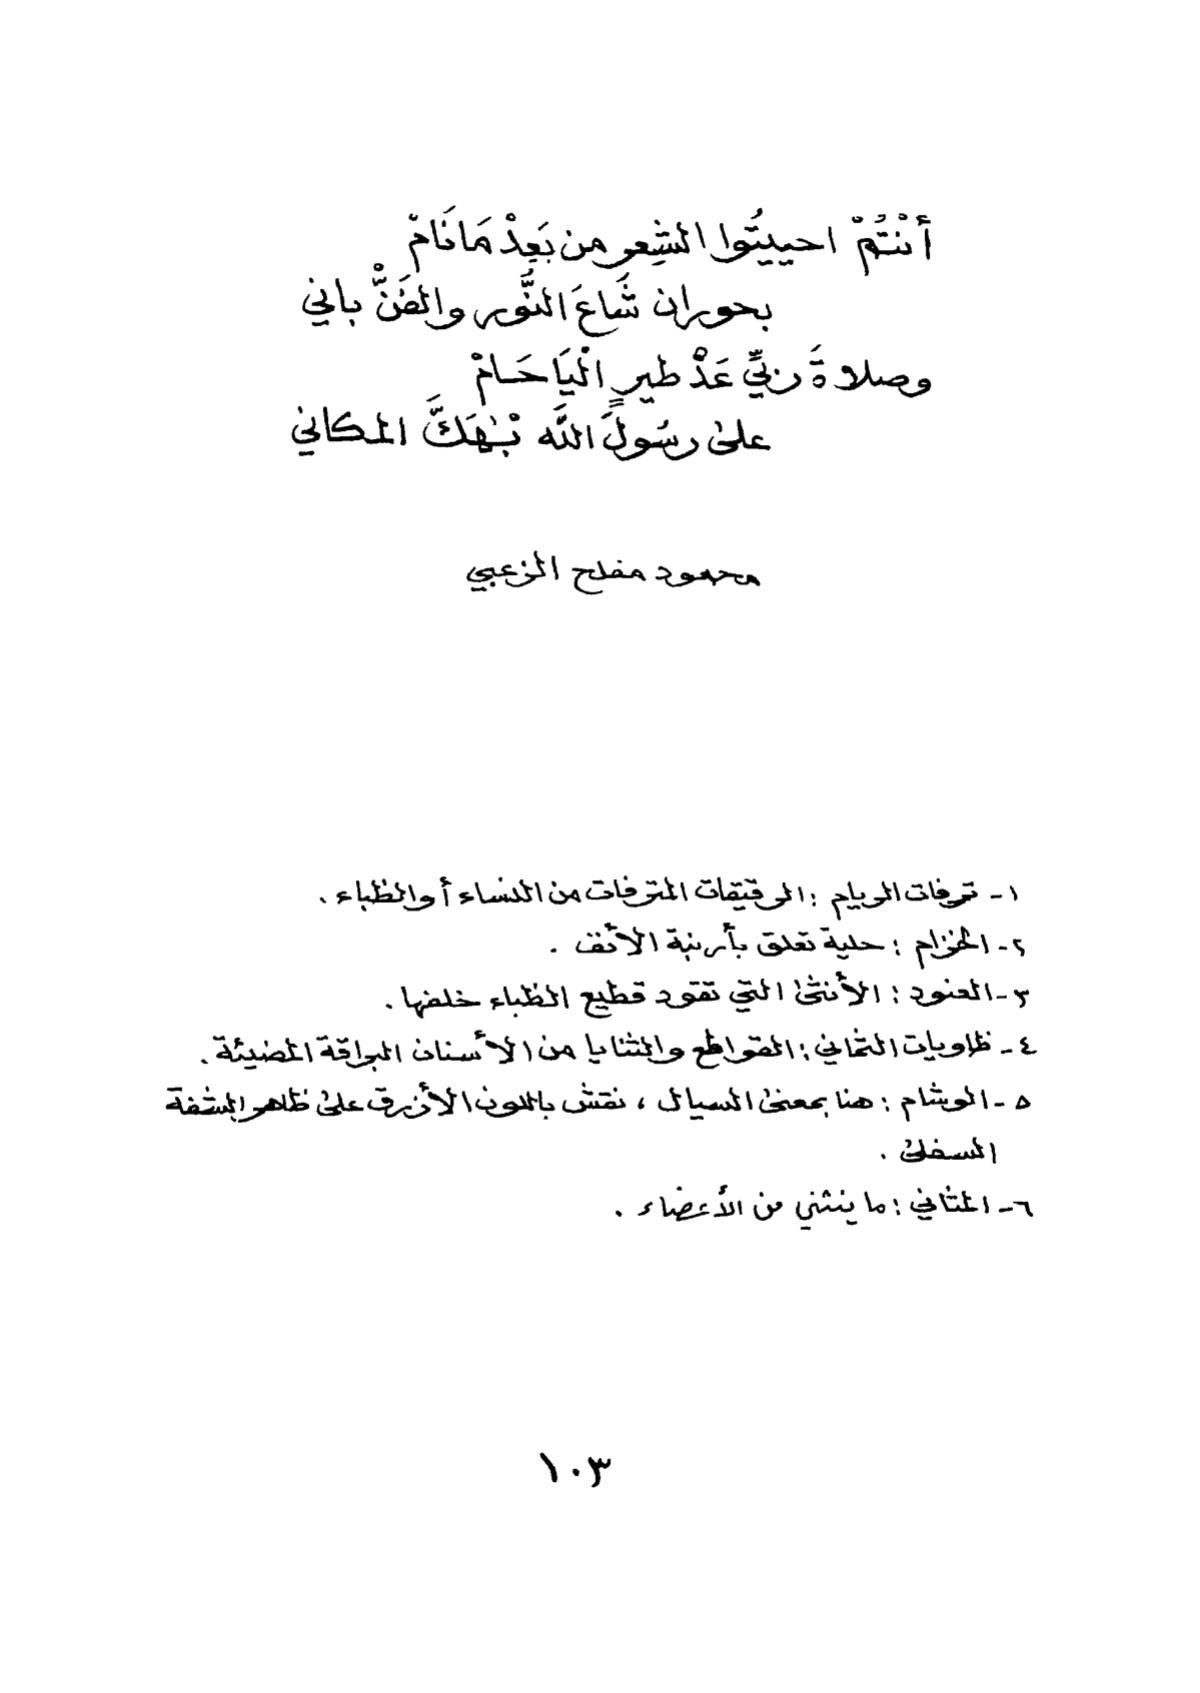 أنْتُمْ احييتُوا الشِعر من بَعِدْ مَا نَامْ
بحوران شَاعَ النُّور والضَنّْ باني
وصلاةَ ربيِّ عَدْ طيرٍ الْيَا حَامْ
على رسُولَ اللَّه بْهَكَّ المكاني
محمود مفلح الزعبي
١- ترفات الريام : الرقيقات المترفات من النساء أو الظباء .
٢- الخزام : حلية تعلق بأرنبة الأنف .
٣- العنود : الأنثى التي تقود قطيع الظباء خلفها .
٤- ظاويات الثماني : القواطع والثنايا من الأسنان البراقة المضيئة .
٥- الوشام : هنا بمعنى السيال ، نقش باللون الأزرق على ظاهر الشفة
السفلى .
٦- المثاني : ما ينثني من الأعضاء .
١٠٣